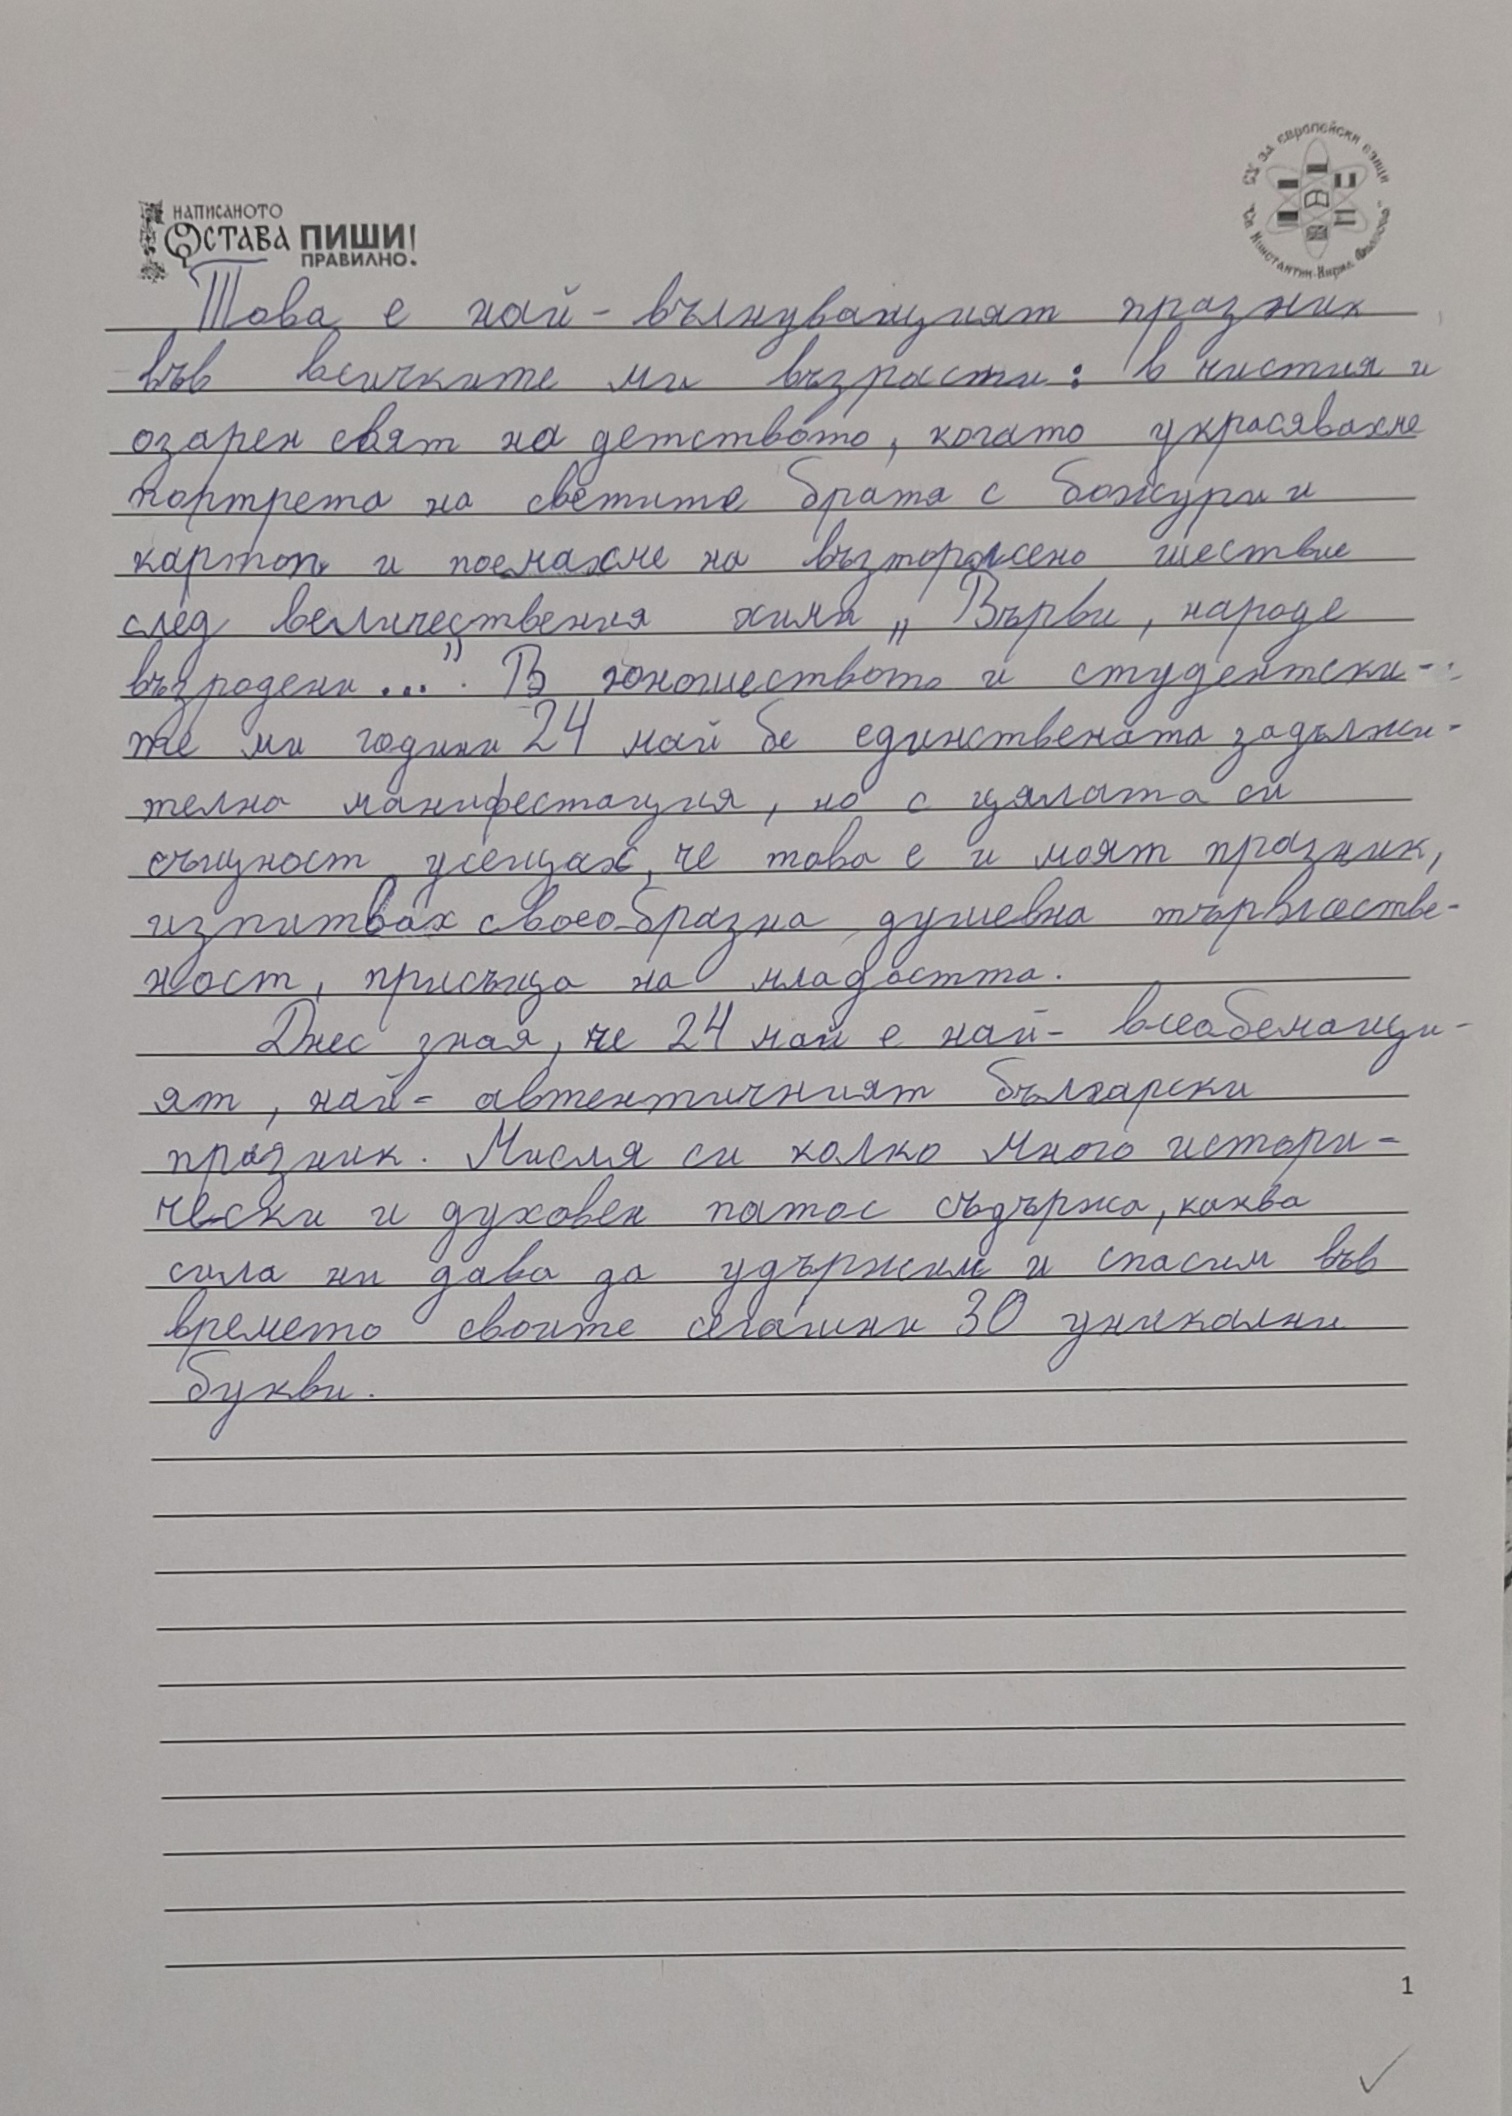 НАПИСАНОТО
ОСТАВА ПИШИ!
ПРАВИЛНО.
СУ за европейски езици
"Св. Константин-Кирил Философ"
Това е най-вълнуващият празник
във всичките ми възрасти: в чистия и
озарен свят на детството, когато украсявахме
портрета на светите братя с божури и
картон и поемахме на възторжено шествие
след величествения химн „Върви, народе
възродени...". В юношеството и студентски-
те ми години 24 май бе единствената задължи-
телна манифестация, но с цялата си
същност усещах, че това е и моят празник,
изпитвах своеобразна душевна тържестве-
ност, присъща на младостта.
Днес зная, че 24 май е най-всеобемащи-
ят, най-автентичният български
празник. Мисля си колко много истори-
чески и духовен патос съдържа, каква
сила ни дава да удържим и спасим във
времето своите сегашни 30 уникални
букви.
1